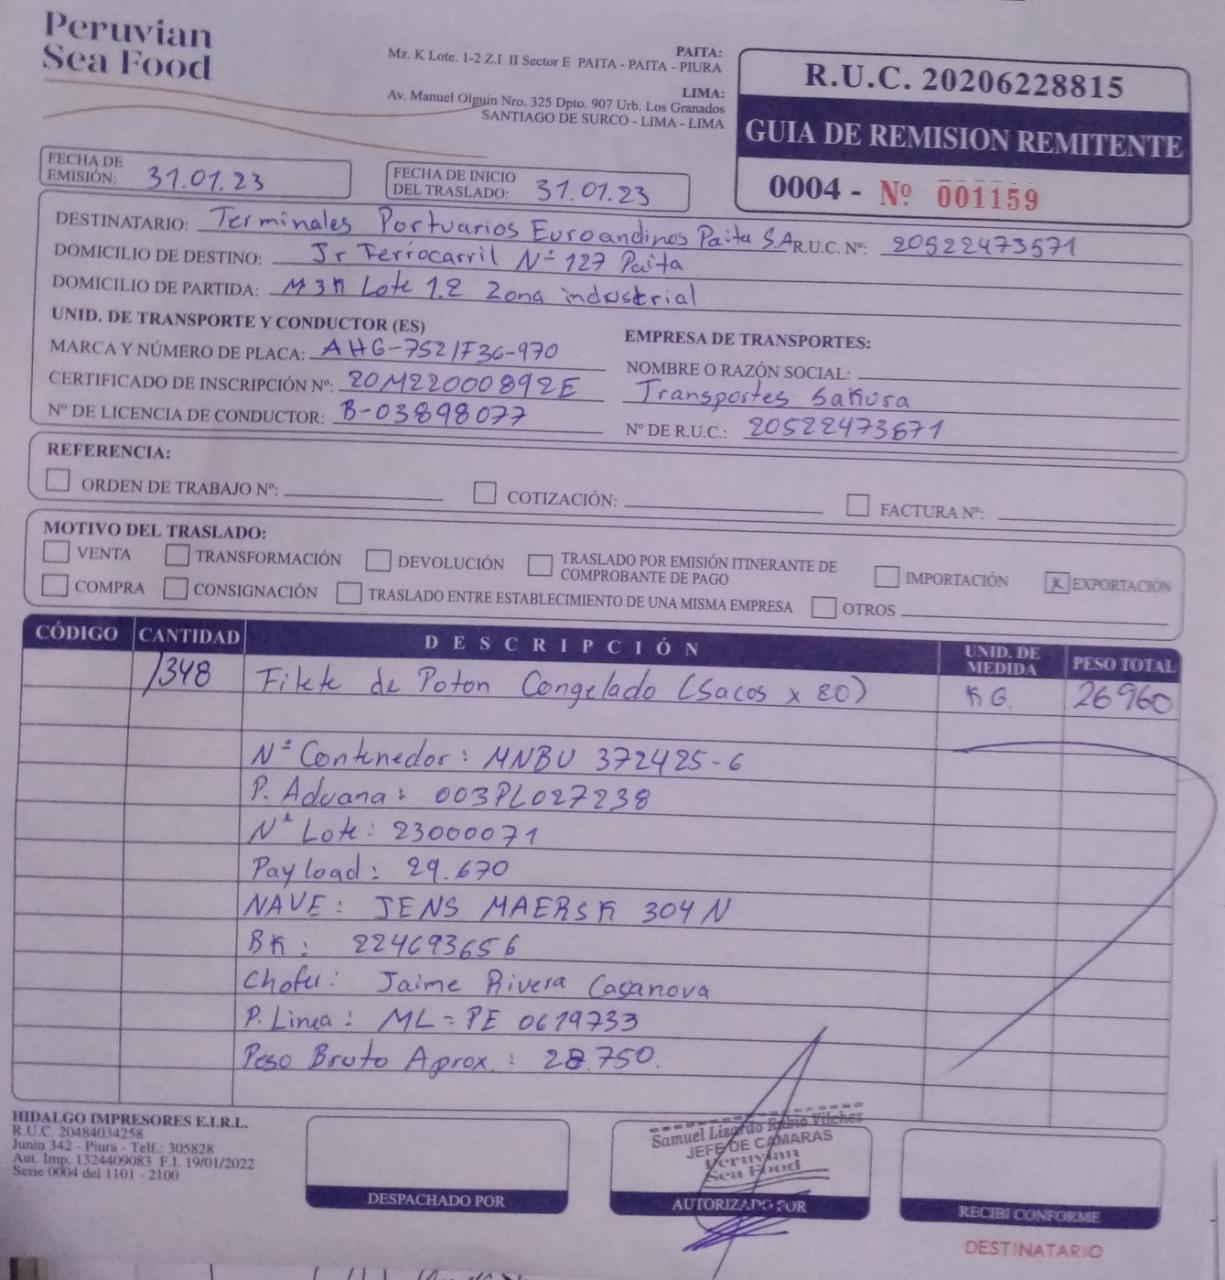 Peruvian
Sea Food
PAITA:
Mz. K Lote. 1-2 Z.I II Sector E PAITA - PAITA - PIURA
LIMA:
Av. Manuel Olguin Nro. 325 Dpto. 907 Urb. Los Granados
SANTIAGO DE SURCO - LIMA - LIMA
R.U.C. 20206228815
GUIA DE REMISION REMITENTE
0004 - Nº 001159
FECHA DE EMISIÓN: 31.01.23
FECHA DE INICIO DEL TRASLADO: 31.01.23
DESTINATARIO: Terminales Portuarios Euroandinos Paita S.A R.U.C. Nº: 20522473571
DOMICILIO DE DESTINO: Jr Ferrocarril Nº 127 Paita
DOMICILIO DE PARTIDA: M3K Lote 1.2 Zona industrial
UNID. DE TRANSPORTE Y CONDUCTOR (ES)
MARCA Y NÚMERO DE PLACA: AHG-752/F36-970
CERTIFICADO DE INSCRIPCIÓN Nº: 20M22000892E
Nº DE LICENCIA DE CONDUCTOR: B-03898077
EMPRESA DE TRANSPORTES:
NOMBRE O RAZÓN SOCIAL:
Transportes Sakura
Nº DE R.U.C.: 20522473571
REFERENCIA:
ORDEN DE TRABAJO Nº: COTIZACIÓN: FACTURA Nº:
MOTIVO DEL TRASLADO:
VENTA TRANSFORMACIÓN DEVOLUCIÓN TRASLADO POR EMISIÓN ITINERANTE DE COMPROBANTE DE PAGO IMPORTACIÓN x EXPORTACIÓN
COMPRA CONSIGNACIÓN TRASLADO ENTRE ESTABLECIMIENTO DE UNA MISMA EMPRESA OTROS
CÓDIGO CANTIDAD DESCRIPCIÓN UNID. DE MEDIDA PESO TOTAL
1348 Filete de Poton Congelado (Sacos x 20) KG. 26960
Nº Contenedor: MNBU 372425-6
P. Aduana: 003PL027238
Nº Lote: 23000071
Payload: 29.670
NAVE: JENS MAERSK 304 N
BK: 224693656
Chofer: Jaime Rivera Casanova
P. Linea: ML=PE 0619733
Peso Bruto Aprox.: 28.750.
HIDALGO IMPRESORES E.I.R.L.
R.U.C. 20484034258
Junin 342 - Piura - Telf.: 305828
Aut. Imp. 1324409083 F.I. 19/01/2022
Serie 0004 del 1101 - 2100
DESPACHADO POR
Samuel Lizardo Rubio Vilchez
JEFE DE CAMARAS
Peruvian
Sea Food
AUTORIZADO POR
RECIBI CONFORME
DESTINATARIO